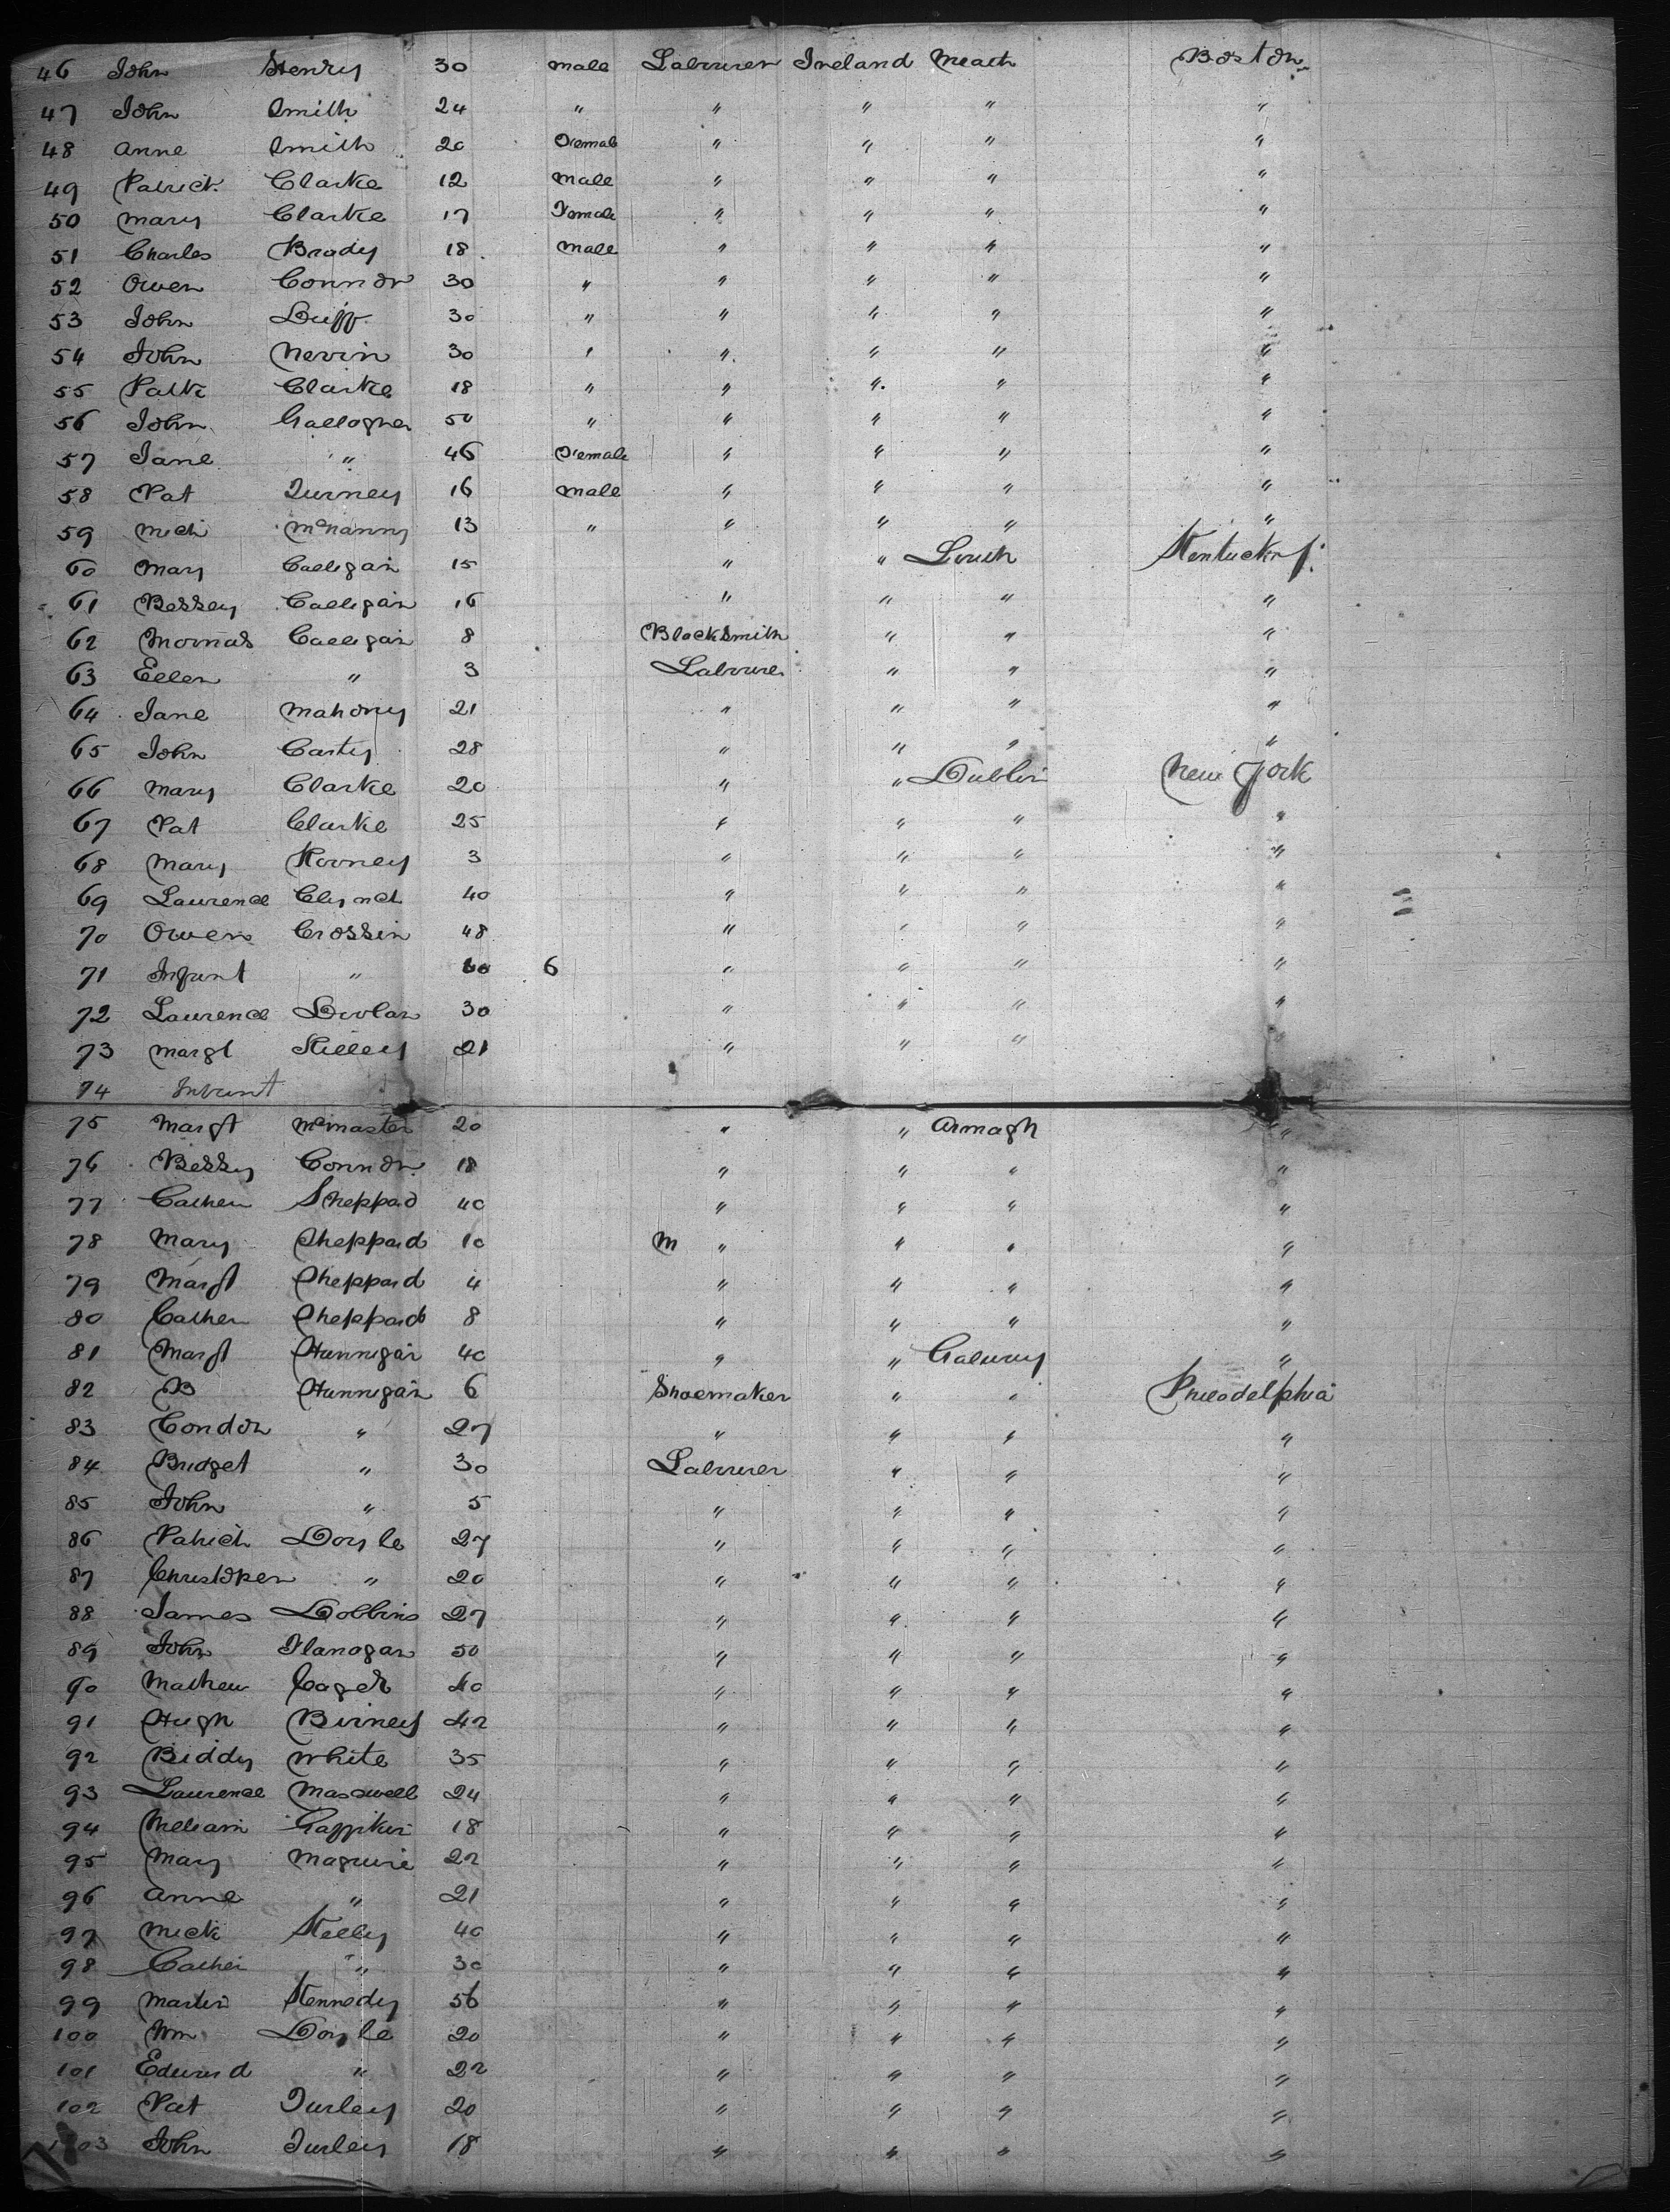 46 John Henry 30 male Labourer Ireland Meath Boston
47 John Smith 24 " " " " "
48 Anne Smith 20 Female " " " "
49 Patrick Clarke 12 male " " " "
50 Mary Clarke 17 Female " " " "
51 Charles Brady 18 male " " " "
52 Owen Connor 30 " " " " "
53 John Duff 30 " " " " "
54 John Nevin 30 " " " " "
55 Patk Clarke 18 " " " " "
56 John Gallogher 50 " " " " "
57 Jane " 46 Female " " " "
58 Pat Furney 16 male " " " "
59 Mich McNanny 13 " " " " "
60 Mary Calligan 15 " " Louth Kentucky
61 Bessey Calligan 16 " " " "
62 Thomas Calligan 8 BlackSmith " " "
63 Ellen " 3 Labourer " " "
64 Jane Mahony 21 " " " "
65 John Carty 28 " " " "
66 Mary Clarke 20 " " Dublin New York
67 Pat Clarke 25 " " " "
68 Mary Rooney 3 " " " "
69 Laurence Clynch 40 " " " "
70 Owen Crossin 48 " " " "
71 Infant " 6 " " " "
72 Laurence Doolan 30 " " " "
73 Margt Killey 21 " " "
74 Infant
75 Margt McMaster 20 " " Armagh "
76 Bessy Connor 18 " " " "
77 Cather Sheppard 40 " " " "
78 Mary Sheppard 10 M " " " "
79 Margt Sheppard 4 " " " "
80 Cather Sheppard 8 " " " "
81 Margt Hannigan 40 " " Galway "
82 B Hannigan 6 Shoemaker " " Philadelphia
83 Condon " 27 " " " "
84 Bridget " 30 Labourer " " "
85 John " 5 " " " "
86 Patrick Doyle 27 " " " "
87 Christopher " 20 " " " "
88 James Dobbins 27 " " " "
89 John Flanogan 50 " " " "
90 Mathew 40 " " " "
91 Hugh Birney 42 " " " "
92 Biddy White 35 " " " "
93 Laurence Maxwell 24 " " " "
94 William Gaffikin 18 " " " "
95 Mary Maguire 22 " " " "
96 Anne " 21 " " " "
97 Mick Kelly 40 " " " "
98 Cather " 30 " " " "
99 Martin Kennedy 56 " " " "
100 Wm Doyle 20 " " " "
101 Edward " 22 " " " "
102 Pat Furley 20 " " " "
103 John Furley 18 " " " "